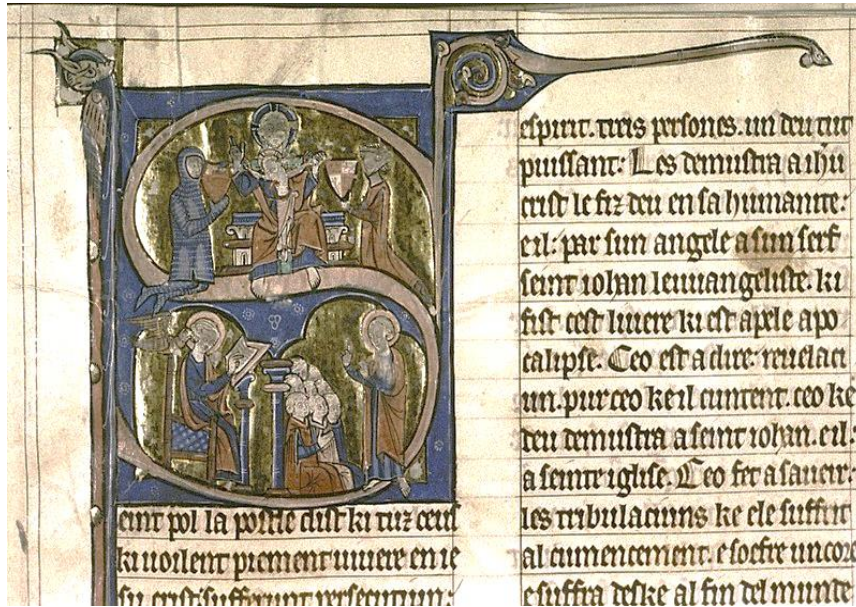 eint pol la postle dist ki tuz ceus
ki uoilent piement uiuere en ie
su crist sufferunt persecutiun:
espirit. treis persones. un deu tut
puissant: Les demustra a ihu
crist le fiz deu en sa humanite:
e il: par sun angele a sun serf
seint iohan le uuangeliste. ki
fist cest liuere ki est apele apo
calipse. Ceo est a dire: reuelaci
un. pur ceo ke il cuntent. ceo ke
deu demustra a seint iohan. e il:
a seinte iglise. Ceo fet a sauer:
les tribulaciuns ke ele suffrit
al cumencement. e soefre uncore
e suffra deske al fin del munde